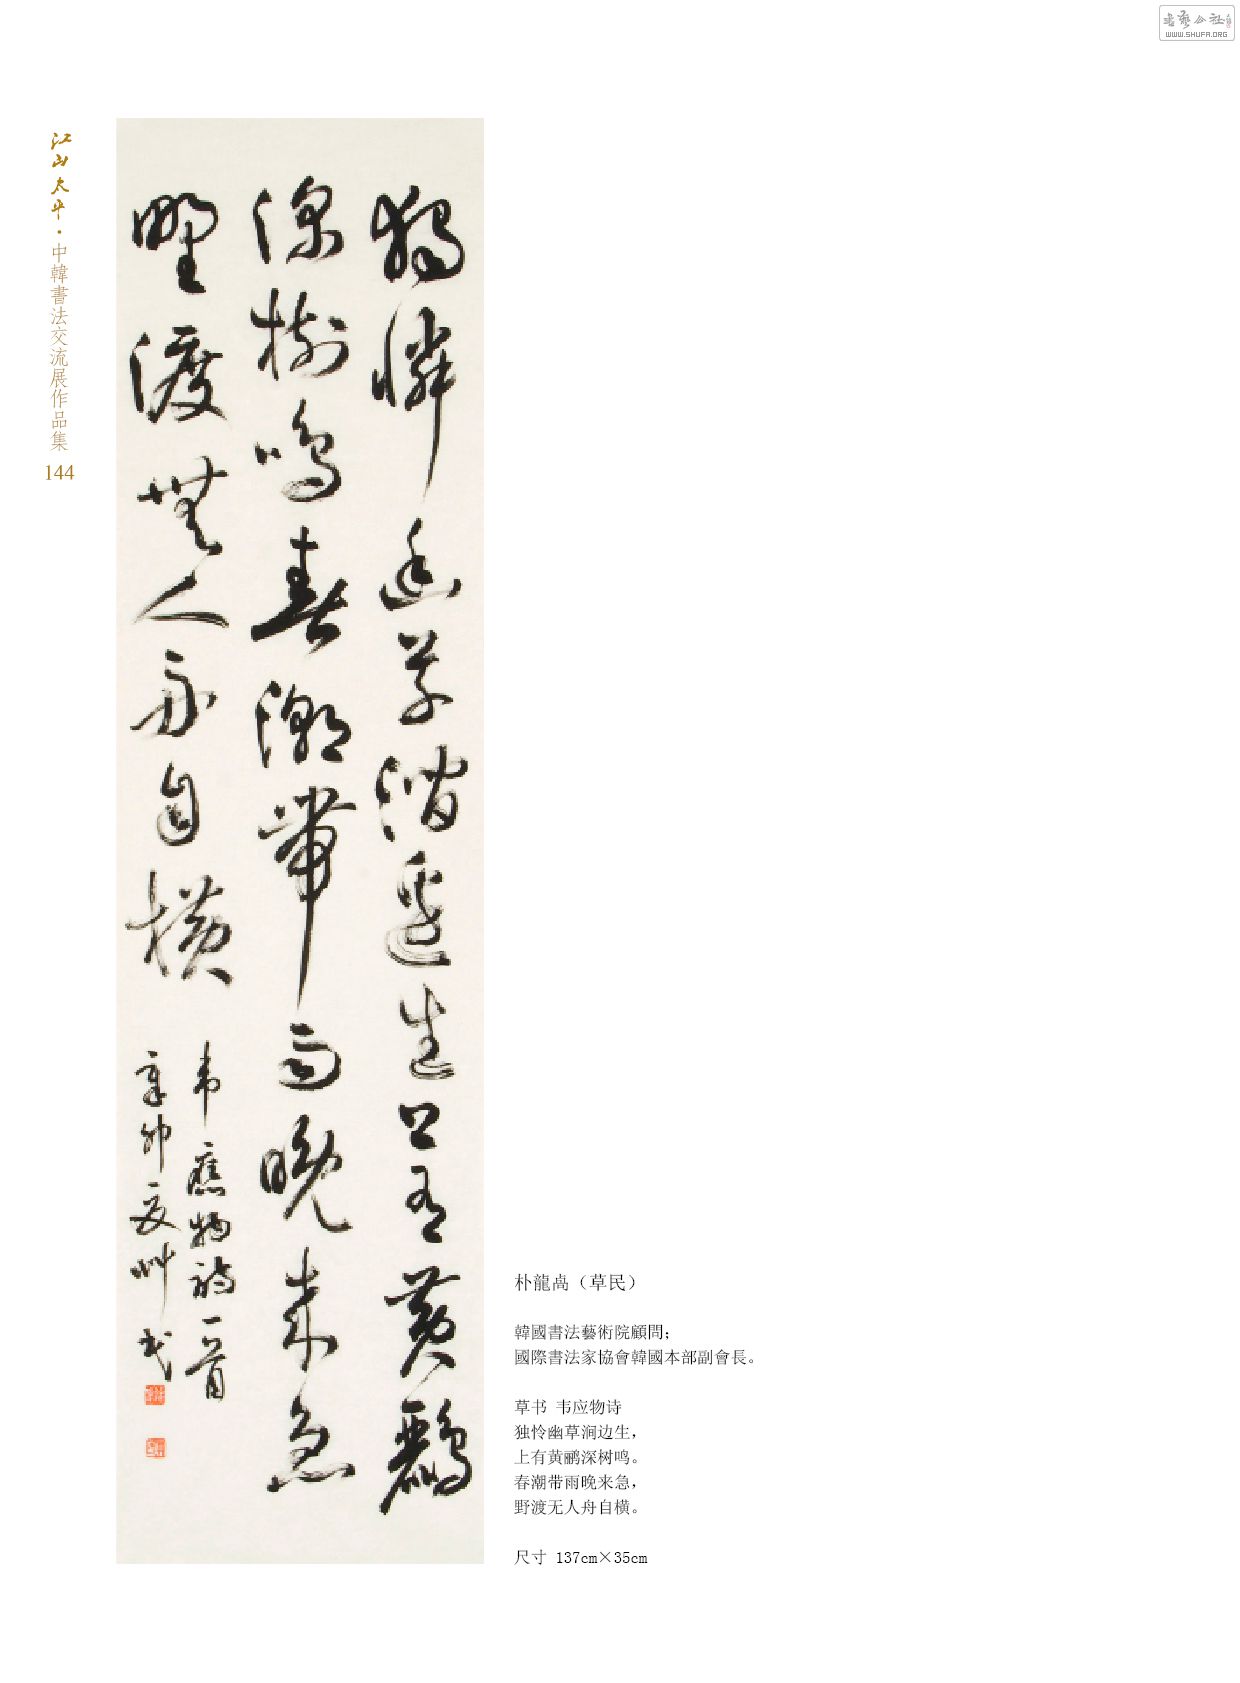 書藝公社
WWW.SHUFA.ORG
江山太平·中韓書法交流展作品集
144
獨憐幽草澗邊生上有黃鸝
深樹鳴春潮帶雨晚来急
野渡無人舟自橫
韋應物詩一首
辛卯夏艸民
朴龍卨（草民）
韓國書法藝術院顧問；
國際書法家協會韓國本部副會長。
草书 韦应物诗
独怜幽草涧边生，
上有黄鹂深树鸣。
春潮带雨晚来急，
野渡无人舟自横。
尺寸 137cm×35cm